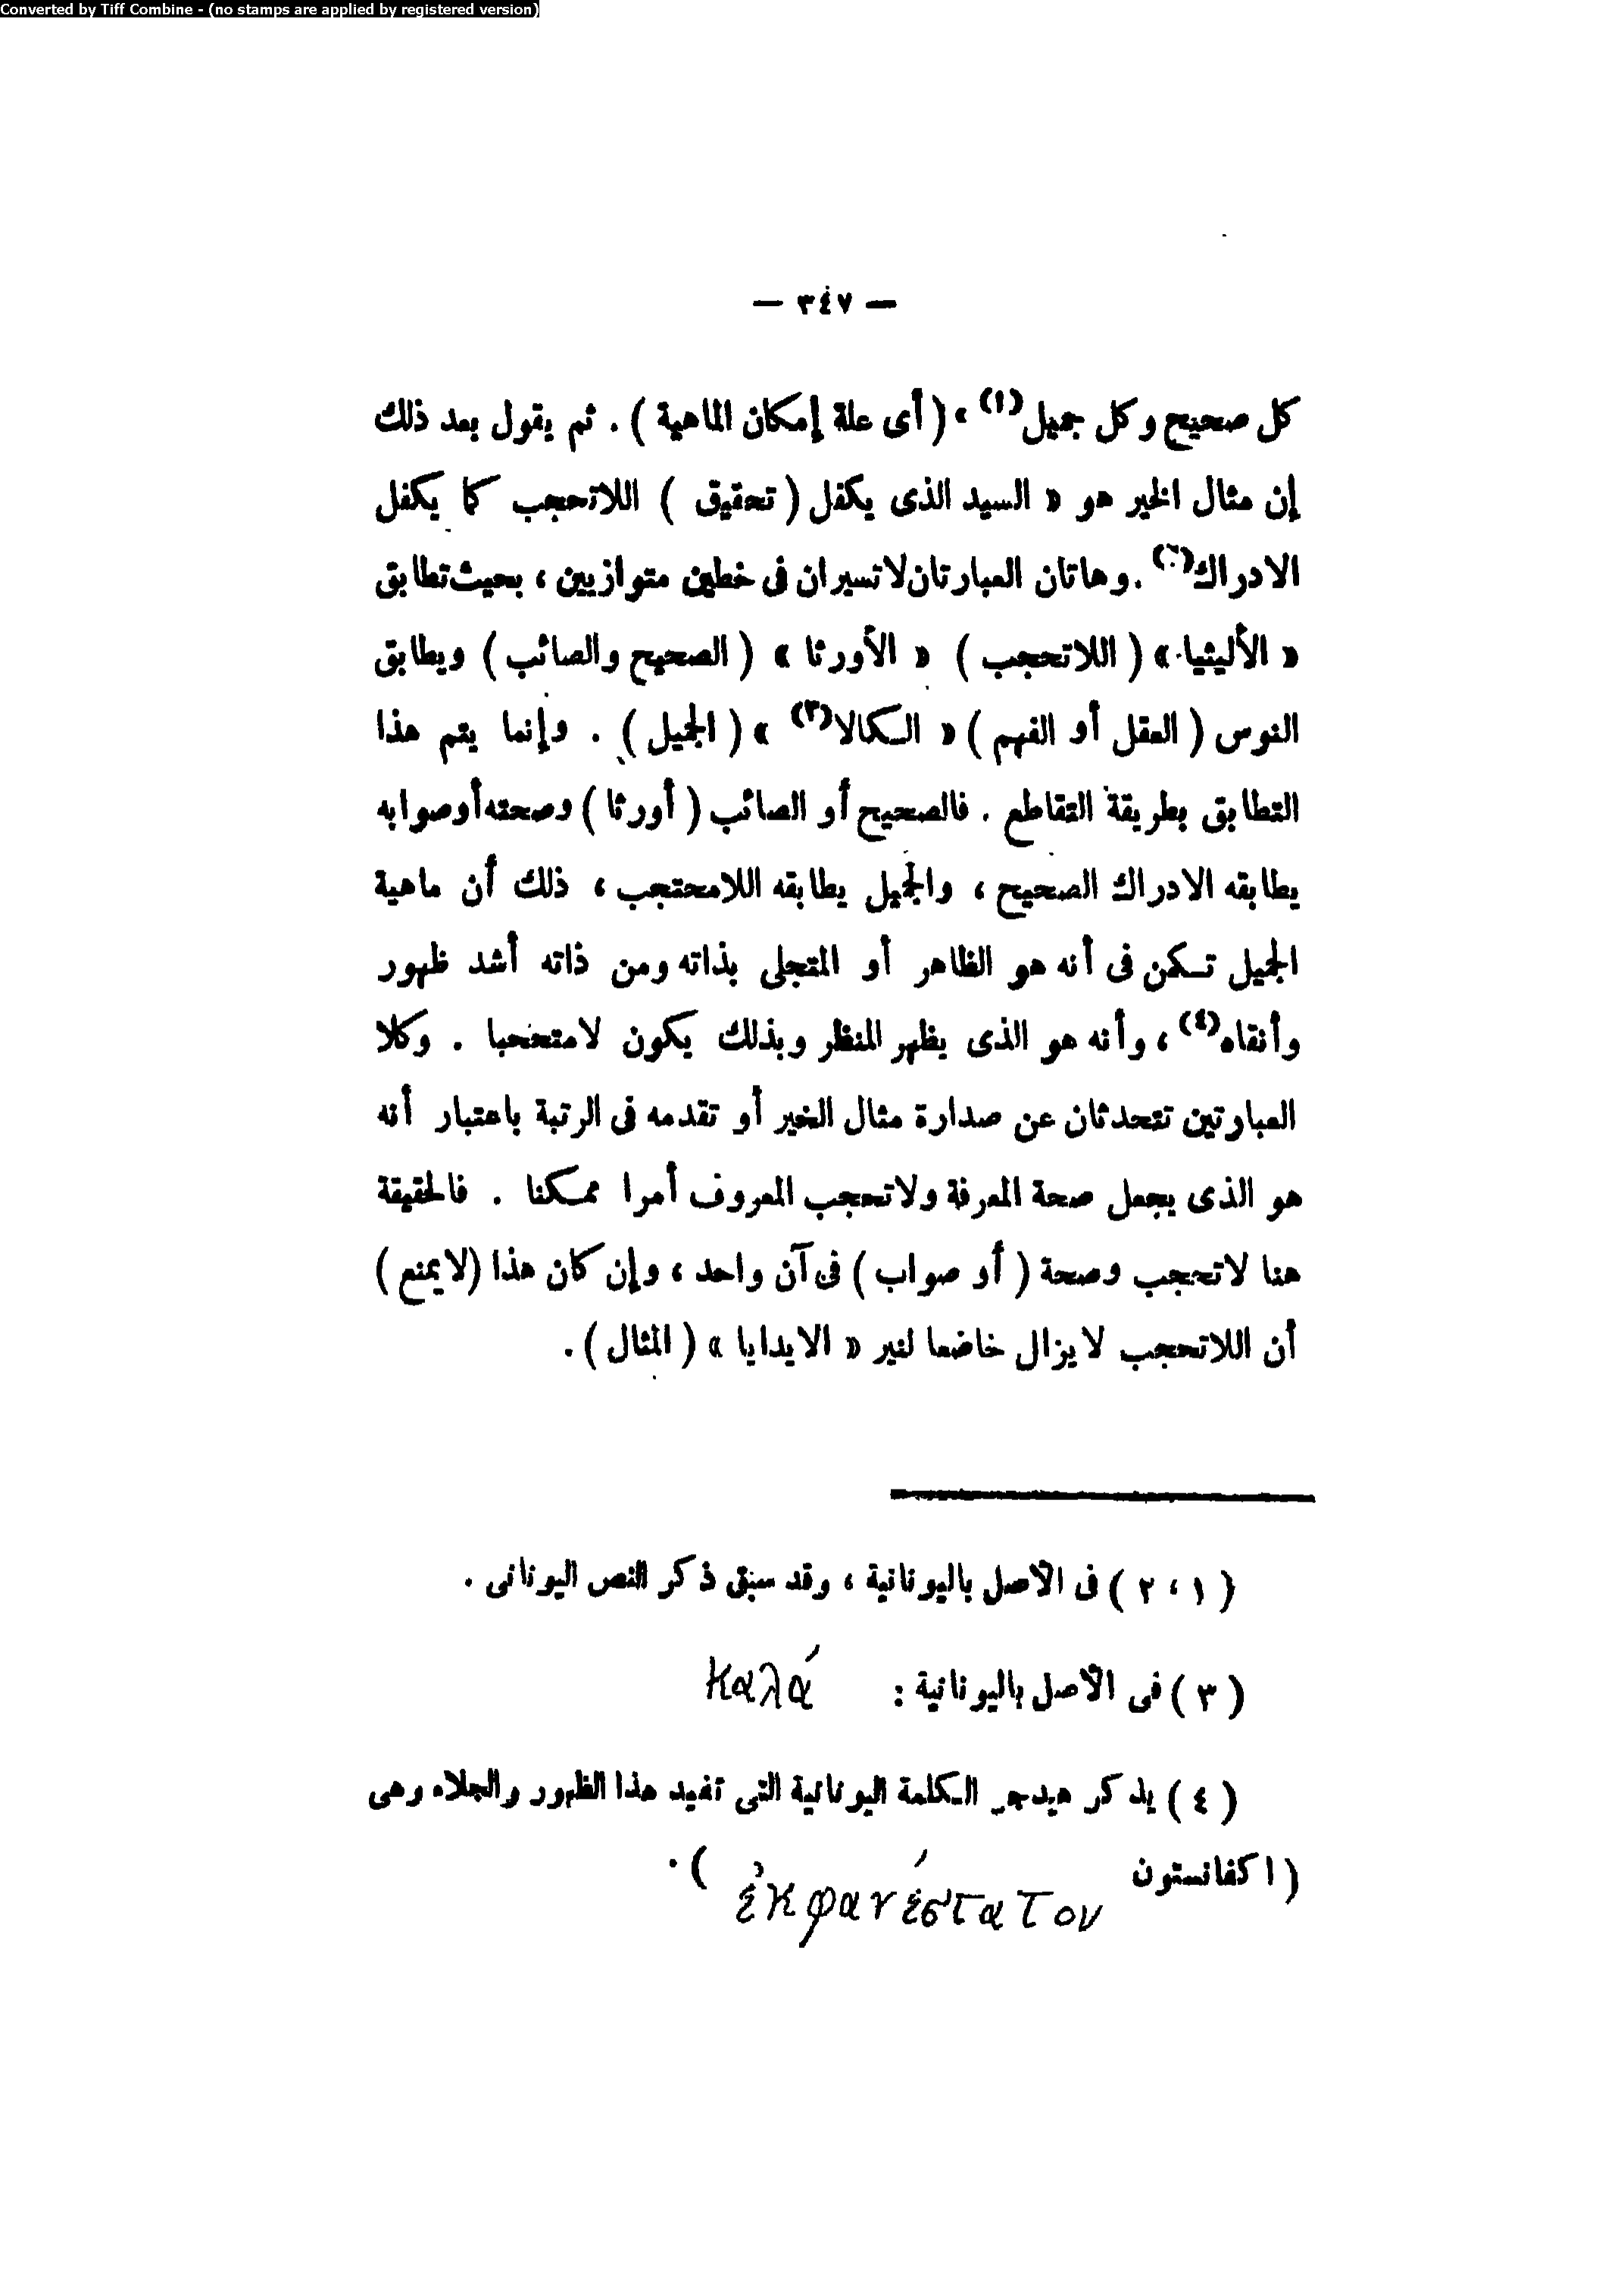 Converted by Tiff Combine - (no stamps are applied by registered version)
— ٣٤٧ —
كل صحيح وكل جميل(١) ، ( أى علة إمكان الماهية ) . ثم يقول بعد ذلك
إن مثال الخير هو « السيد الذى يكفل ( تحقيق ) اللاتحجب كما يكفل
الادراك(٢) . وهاتان العبارتان لاتسيران فى خطين متوازيين ، بحيث تطابق
« الأليثيا » ( اللاتحجب ) « الأورثا » ( الصحيح والصائب ) ويطابق
النوس ( العقل أو الفهم ) « الكالا(٣) » ( الجميل ) . وإنما يتم هذا
التطابق بطريقة التقاطع . فالصحيح أو الصائب ( أورثا ) وصحته أوصوابه
يطابقه الادراك الصحيح ، والجميل يطابقه اللامحتجب ، ذلك أن ماهية
الجميل تكمن فى أنه هو الظاهر أو المتجلى بذاته ومن ذاته أشد ظهور
وأنقاه(٤) ، وأنه هو الذى يظهر المنظر وبذلك يكون لامتحجبا . وكلا
العبارتين تتحدثان عن صدارة مثال الخير أو تقدمه فى الرتبة باعتبار أنه
هو الذى يجعل صحة المعرفة ولاتحجب المعروف أمرا ممكنا . فالحقيقة
هنا لاتحجب وصحة ( أو صواب ) فى آن واحد ، وإن كان هذا (لايمنع )
أن اللاتحجب لايزال خاضعا لنير « الايدايا » ( المثال ) .
( ١ ، ٢ ) فى الأصل باليونانية ، وقد سبق ذكر النص اليونانى .
( ٣ ) فى الأصل باليونانية : καλά
( ٤ ) يذكر هيدجر الكلمة اليونانية التى تفيد هذا الظهور والجلاء وهى
( اكفانستون ἐκφανέστατον ) .